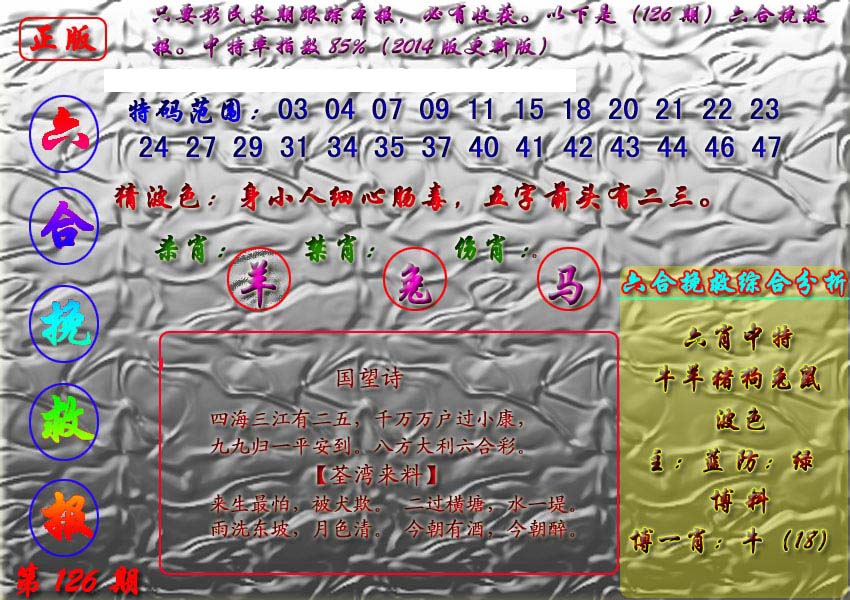 正版
只要彩民长期跟踪本报，必有收获。以下是（126期）六合挽救
报。中特率指数85%（2014版更新版）
六合挽救报
第126期
特码范围：03 04 07 09 11 15 18 20 21 22 23
24 27 29 31 34 35 37 40 41 42 43 44 46 47
猜波色：身小人细心肠毒，五字前头有二三。
杀肖：羊 禁肖：兔 伤肖：马
国望诗
四海三江有二五，千万万户过小康，
九九归一平安到。八方大利六合彩。
【荃湾来料】
来生最怕，被犬欺。 二过横塘，水一堤。
雨洗东坡，月色清。 今朝有酒，今朝醉。
六合挽救综合分析
六肖中特
牛羊猪狗兔鼠
波色
主：蓝防：绿
博料
博一肖：牛（18）